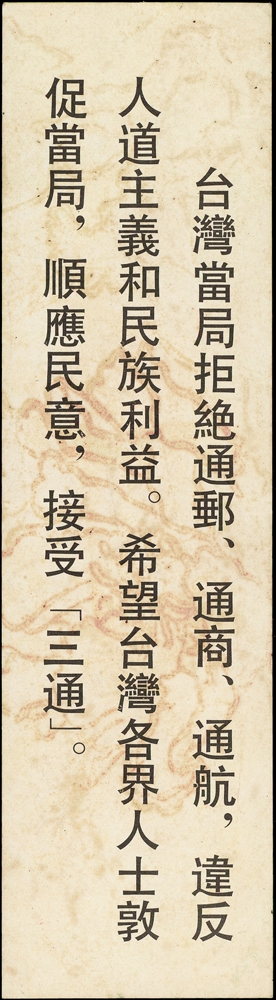 台灣當局拒絶通郵、通商、通航，違反
人道主義和民族利益。希望台灣各界人士敦
促當局，順應民意，接受「三通」。